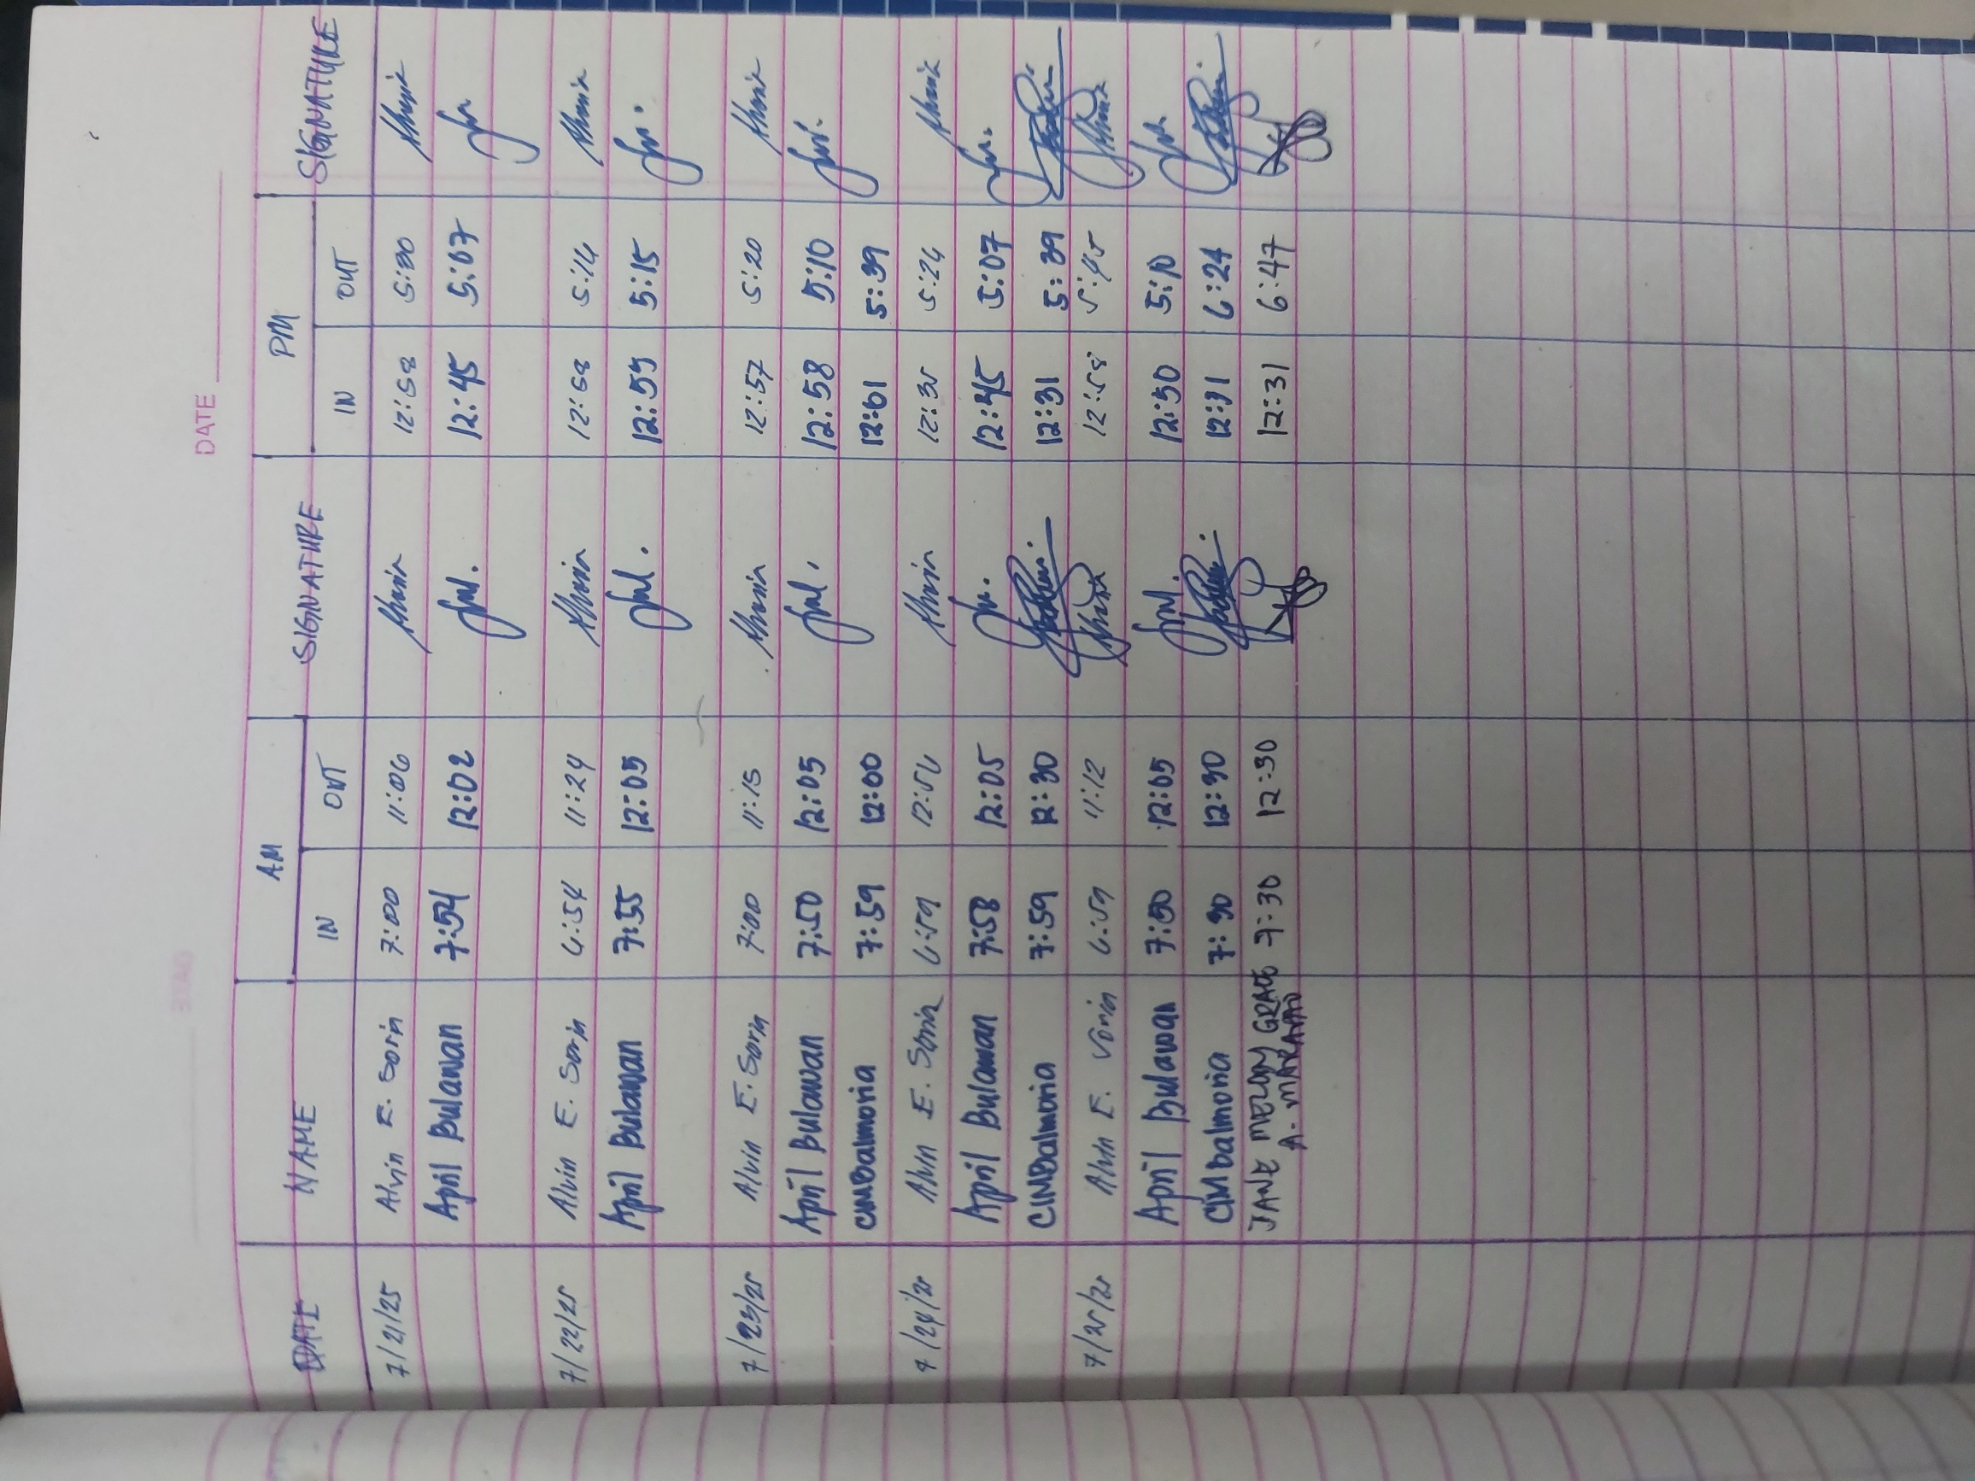 DATE
DATE NAME AM SIGNATURE PM SIGNATURE
IN OUT IN OUT
7/21/25 Alvin E. Soria 7:00 11:06 12:58 5:00
April Bulawan 7:54 12:02 12:45 5:07
7/22/25 Alvin E. Soria 6:54 11:24 12:58 5:14
April Bulawan 7:55 12:05 12:59 5:15
7/23/25 Alvin E. Soria 7:00 11:15 12:57 5:20
April Bulawan 7:50 12:05 12:58 5:10
CIMBalmoria 7:59 12:00 12:01 5:39
7/24/25 Alvin E. Soria 6:59 12:34 5:24
April Bulawan 7:58 12:05 12:45 5:07
CIMBalmoria 7:59 12:30 12:31 5:39
7/25/25 Alvin E. Soria 6:59 11:12 12:58 5:45
April Bulawan 7:50 12:05 12:50 5:10
CIMBalmoria 7:30 12:30 12:31 6:24
JANE MELODY GRACE 7:30 12:30 12:31 6:47
A.